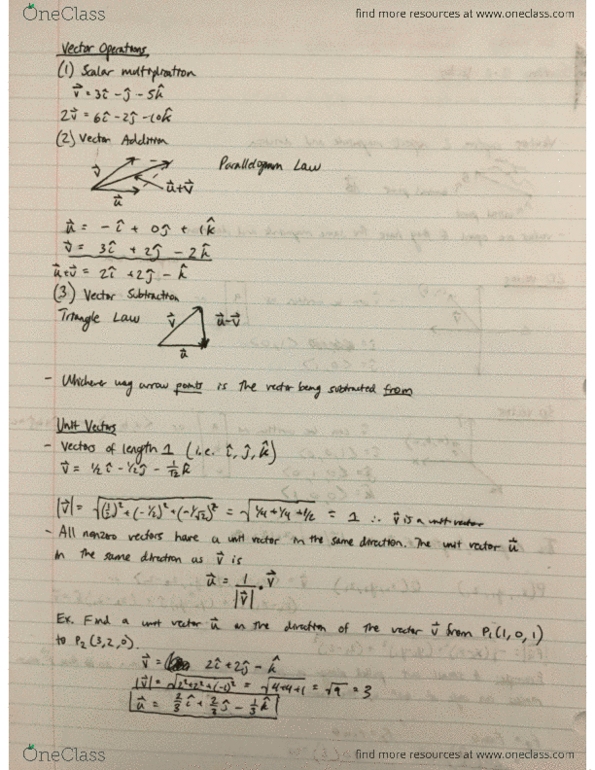 OneClass find more resources at www.oneclass.com
Vector Operations
(1) Scalar multiplication
v⃗ = 3î - ĵ - 5k̂
2v⃗ = 6î - 2ĵ - 10k̂
(2) Vector Addition
Parallelogram Law
v⃗
u⃗+v⃗
u⃗
u⃗ = -î + 0ĵ + 1k̂
v⃗ = 3î + 2ĵ - 2k̂
u⃗+v⃗ = 2î + 2ĵ - k̂
(3) Vector Subtraction
Triangle Law
v⃗ u⃗-v⃗
u⃗
- Whichever way arrow points is the vector being subtracted from
Unit Vectors
- Vectors of length 1 (i.e. î, ĵ, k̂)
v⃗ = 1/2 î - 1/2 ĵ - 1/√2 k̂
|v⃗| = √((1/2)² + (-1/2)² + (-1/√2)²) = √(1/4 + 1/4 + 1/2) = 1 ∴ v⃗ is a unit vector
- All nonzero vectors have a unit vector in the same direction. The unit vector u⃗
in the same direction as v⃗ is
u⃗ = 1/|v⃗| · v⃗
Ex. Find a unit vector u⃗ in the direction of the vector v⃗ from P₁(1,0,1)
to P₂(3,2,0).
v⃗ = 2î + 2ĵ - k̂
|v⃗| = √(2²+2²+(-1)²) = √(4+4+1) = √9 = 3
u⃗ = 2/3 î + 2/3 ĵ - 1/3 k̂
OneClass find more resources at www.oneclass.com